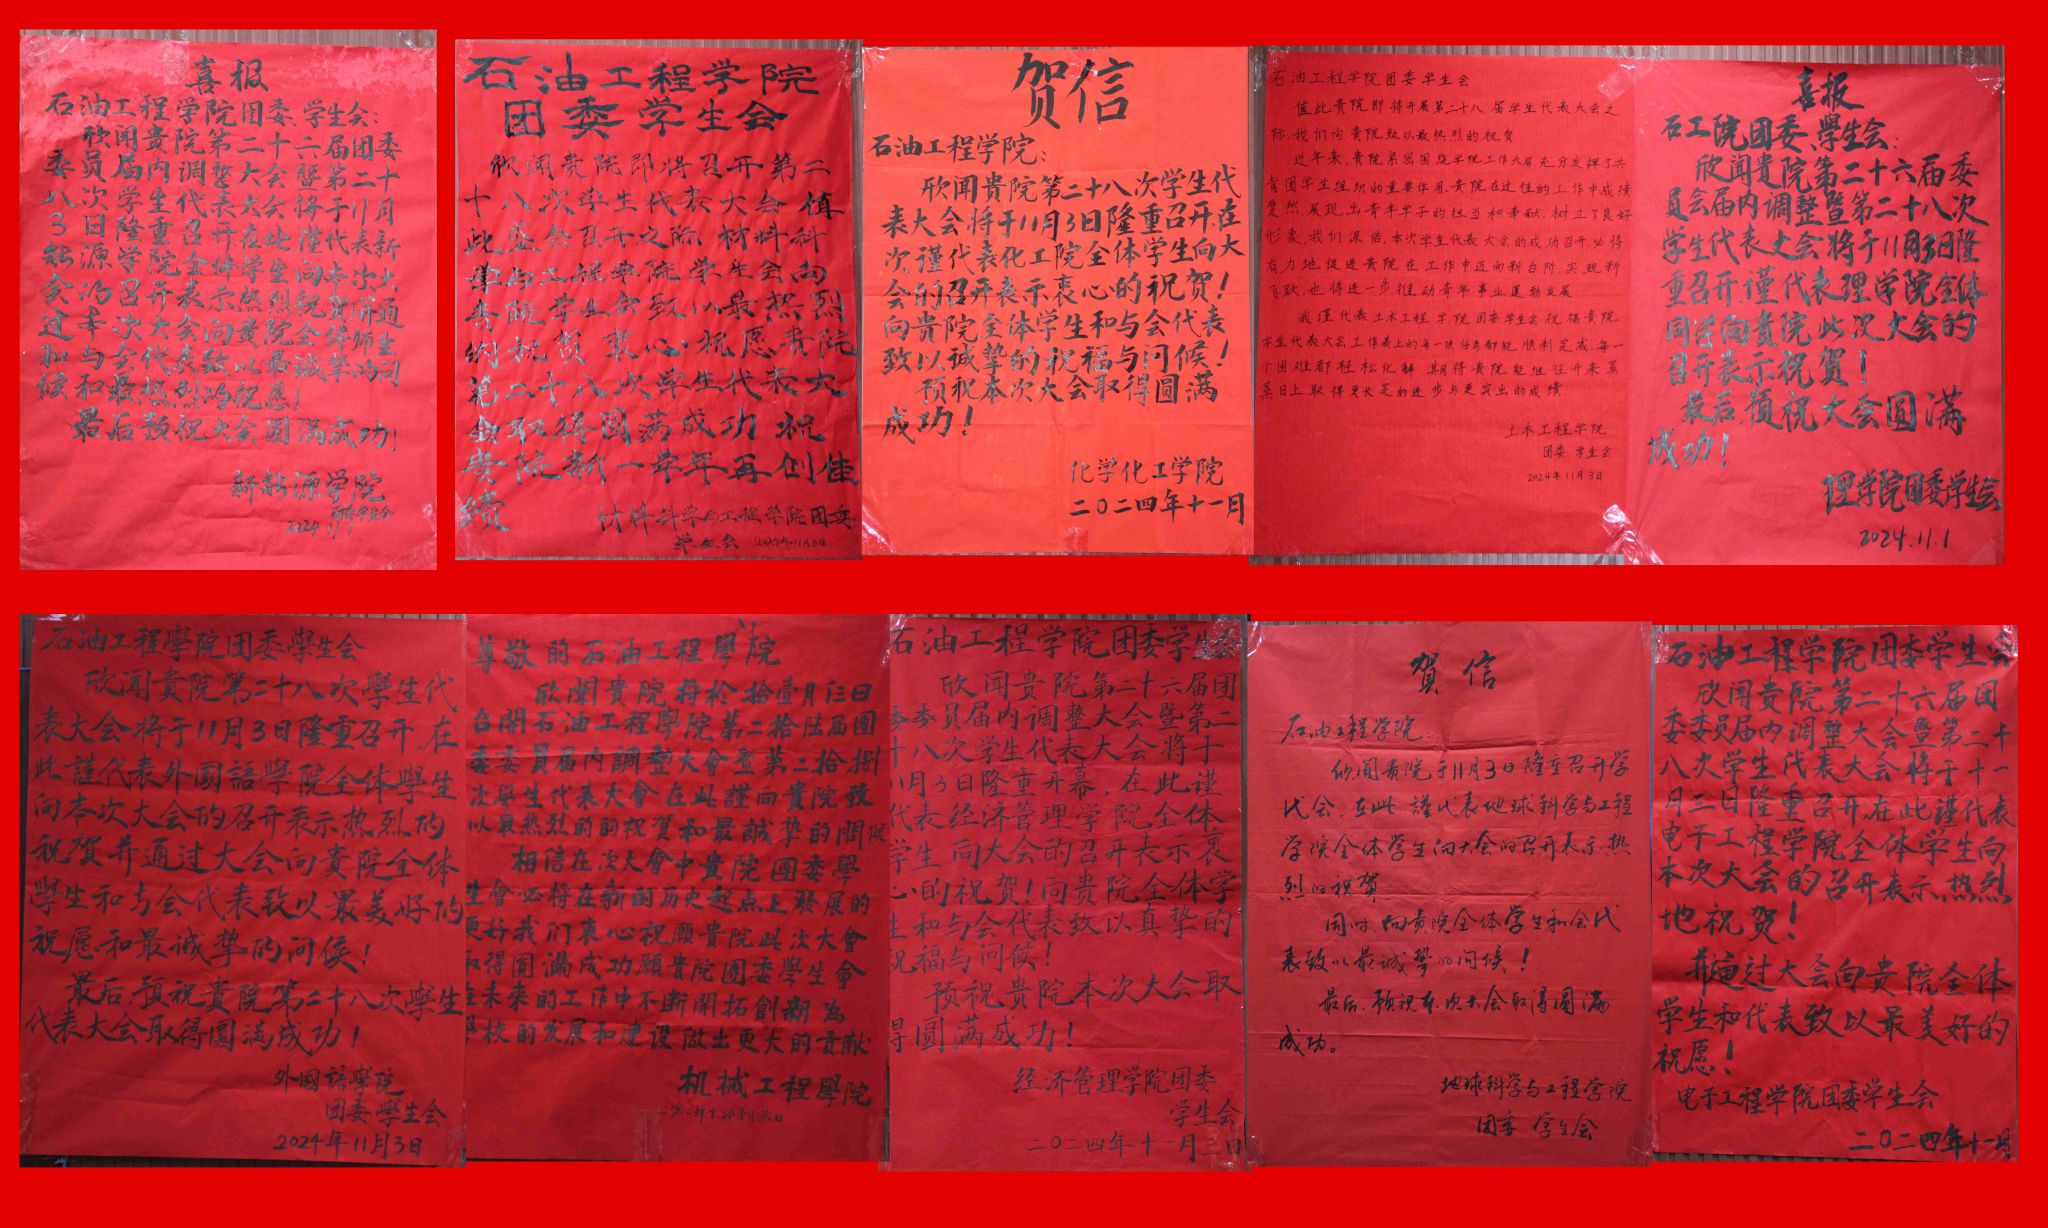 喜报
石油工程学院团委、学生会：
欣闻贵院第二十六届团委
委员届内调整大会暨第二十
八次学生代表大会将于11月
3日隆重召开在此谨代表新
能源学院全体学生向本次大
会的召开表示热烈祝贺!并通
过本次大会向贵院全体师生
和与会代表致以最诚挚的问
候和最热烈的祝愿!
最后预祝大会圆满成功!
新能源学院
团委学生会
2024.11.1
石油工程学院
团委学生会
欣闻贵院即将召开第二
十八次学生代表大会值
此盛会召开之际材料科
学与工程学院学生会向
贵院学生会致以最热烈
的祝贺衷心祝愿贵院
第二十八次学生代表大
会取得圆满成功祝
贵院新一学年再创佳
绩
材料科学与工程学院团委
学生会 2024年11月3日
贺信
石油工程学院:
欣闻贵院第二十八次学生代
表大会将于11月3日隆重召开,在
次,谨代表化工院全体学生向大
会的召开表示衷心的祝贺!
向贵院全体学生和与会代表
致以诚挚的祝福与问候!
预祝本次大会取得圆满
成功!
化学化工学院
二〇二四年十一月
石油工程学院团委学生会
值此贵院即将开展第二十八届学生代表大会之
际,我们向贵院致以最热烈的祝贺
近年来,贵院紧密围绕学院工作大局,充分发挥了共
青团学生组织的重要作用,贵院在过往的工作中成绩
斐然,展现出青年学子的担当和奉献,树立了良好
形象,我们深信,本次学生代表大会的成功召开,必将
有力地促进贵院在工作中迈向新台阶,实现新
飞跃,也将进一步推动青年事业蓬勃发展
我谨代表土木工程学院团委学生会祝福贵院
学生代表大会工作表上的每一项任务都能顺利完成,每一
个困难都轻松化解,期待贵院能继往开来,蒸
蒸日上,取得更长足的进步与更突出的成绩.
土木工程学院
团委 学生会
2024年11月3日
喜报
石工院团委、學生会:
欣闻贵院第二十六届委
员会届内调整暨第二十八次
学生代表大会将于11月3日隆
重召开,谨代表理学院全体
同学向贵院此次大会的
召开表示祝贺!
最后,预祝大会圆满
成功!
理学院团委学生会
2024.11.1
石油工程學院团委學生会
欣闻貴院第二十八次學生代
表大会将于11月3日隆重召开,在
此謹代表外國語學院全体學生
向本次大会的召开表示热烈的
祝贺并通过大会向貴院全体
學生和与会代表致以最美好的
祝愿和最诚挚的问候!
最后,预祝貴院第二十八次學生
代表大会取得圓满成功!
外國語學院
团委學生会
2024年11月3日
尊敬的石油工程學院
欣聞貴院将於拾壹月仨日
召開石油工程學院第二拾陆届團
委委員届内調整大會暨第二拾捌
次學生代表大會在此謹向貴院致
以最热烈的的祝贺和最誠挚的問候
相信在次大會中貴院團委學
生會必将在新的历史起点上發展的
更好我们衷心祝願貴院此次大會
取得圓满成功願貴院團委學生會
在未来的工作中不断開拓創新為
學校的发展和建设做出更大的贡献
机械工程學院
石油工程学院团委学生会
欣闻贵院第二十六届团
委委员届内调整大会暨第二
十八次学生代表大会将于
11月3日隆重开幕,在此谨
代表经济管理学院全体
学生向大会的召开表示衷
心的祝贺!向贵院全体学
生和与会代表致以真挚的
祝福与问候!
预祝贵院本次大会取
得圆满成功!
经济管理学院团委
学生会
二〇二四年十一月三日
賀信
石油工程学院:
欣闻貴院于11月3日隆重召开学
代会,在此,谨代表地球科学与工程
学院全体学生向大会的召开表示热
烈的祝贺
同时,向贵院全体学生和会代
表致以最诚挚的问候!
最后,预祝本次大会取得圆满
成功。
地球科学与工程学院
团委 学生会
石油工程学院团委学生会
欣闻贵院第二十六届团
委委员届内调整大会暨第二十
八次学生代表大会将于十一
月三日隆重召开,在此谨代表
电子工程学院全体学生向
本次大会的召开表示热烈
地祝贺!
并通过大会向贵院全体
学生和代表致以最美好的
祝愿!
电子工程学院团委学生会
二〇二四年十一月